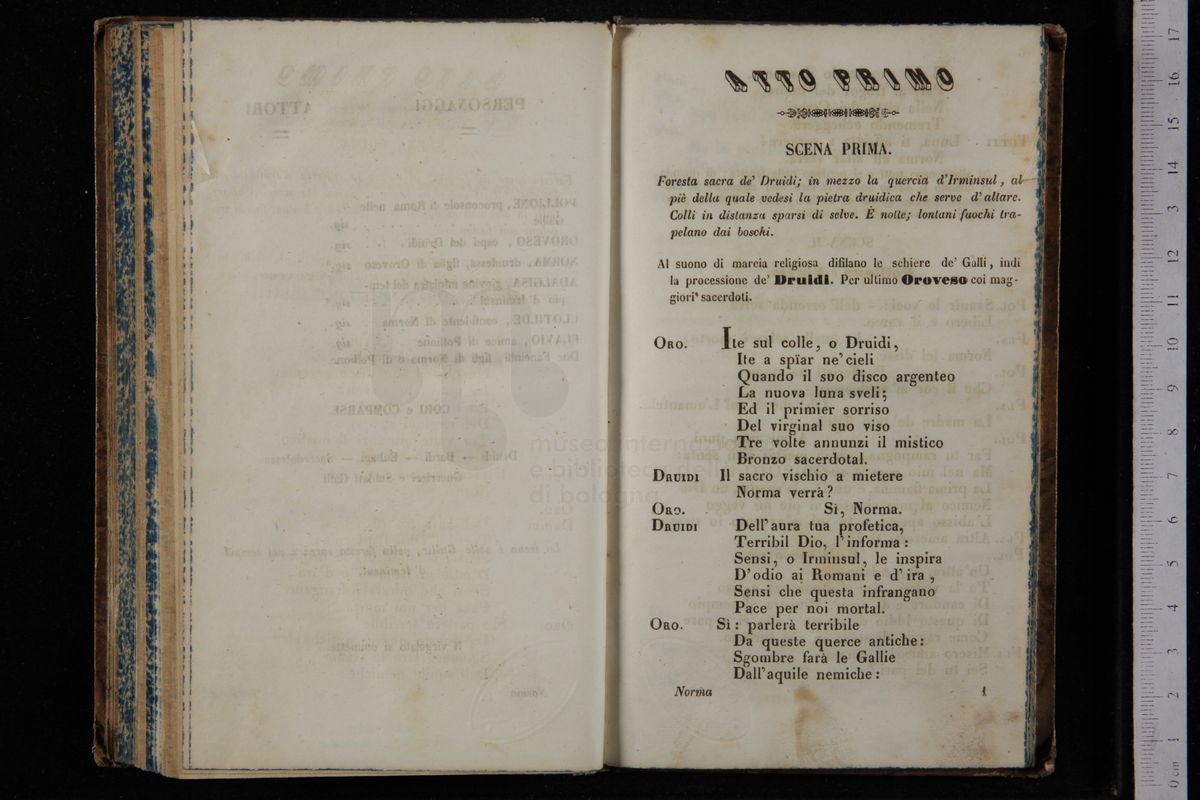 ATTO PRIMO
SCENA PRIMA.
Foresta sacra de' Druidi; in mezzo la quercia d'Irminsul, al
piè della quale vedesi la pietra druidica che serve d'altare.
Colli in distanza sparsi di selve. È notte; lontani fuochi tra-
pelano dai boschi.
Al suono di marcia religiosa difilano le schiere de' Galli, indi
la processione de' Druidi. Per ultimo Oroveso coi mag-
giori sacerdoti.
ORO. Ite sul colle, o Druidi,
Ite a spiar ne' cieli
Quando il suo disco argenteo
La nuova luna sveli;
Ed il primier sorriso
Del virginal suo viso
Tre volte annunzi il mistico
Bronzo sacerdotal.
DRUIDI Il sacro vischio a mietere
Norma verrà?
ORO. Sì, Norma.
DRUIDI Dell'aura tua profetica,
Terribil Dio, l'informa:
Sensi, o Irminsul, le inspira
D'odio ai Romani e d'ira,
Sensi che questa infrangano
Pace per noi mortal.
ORO. Sì: parlerà terribile
Da queste querce antiche:
Sgombre farà le Gallie
Dall'aquile nemiche:
Norma 1
museo internaz
e biblioteca della
di bologna
0 cm 1 2 3 4 5 6 7 8 9 10 11 12 13 14 15 16 17